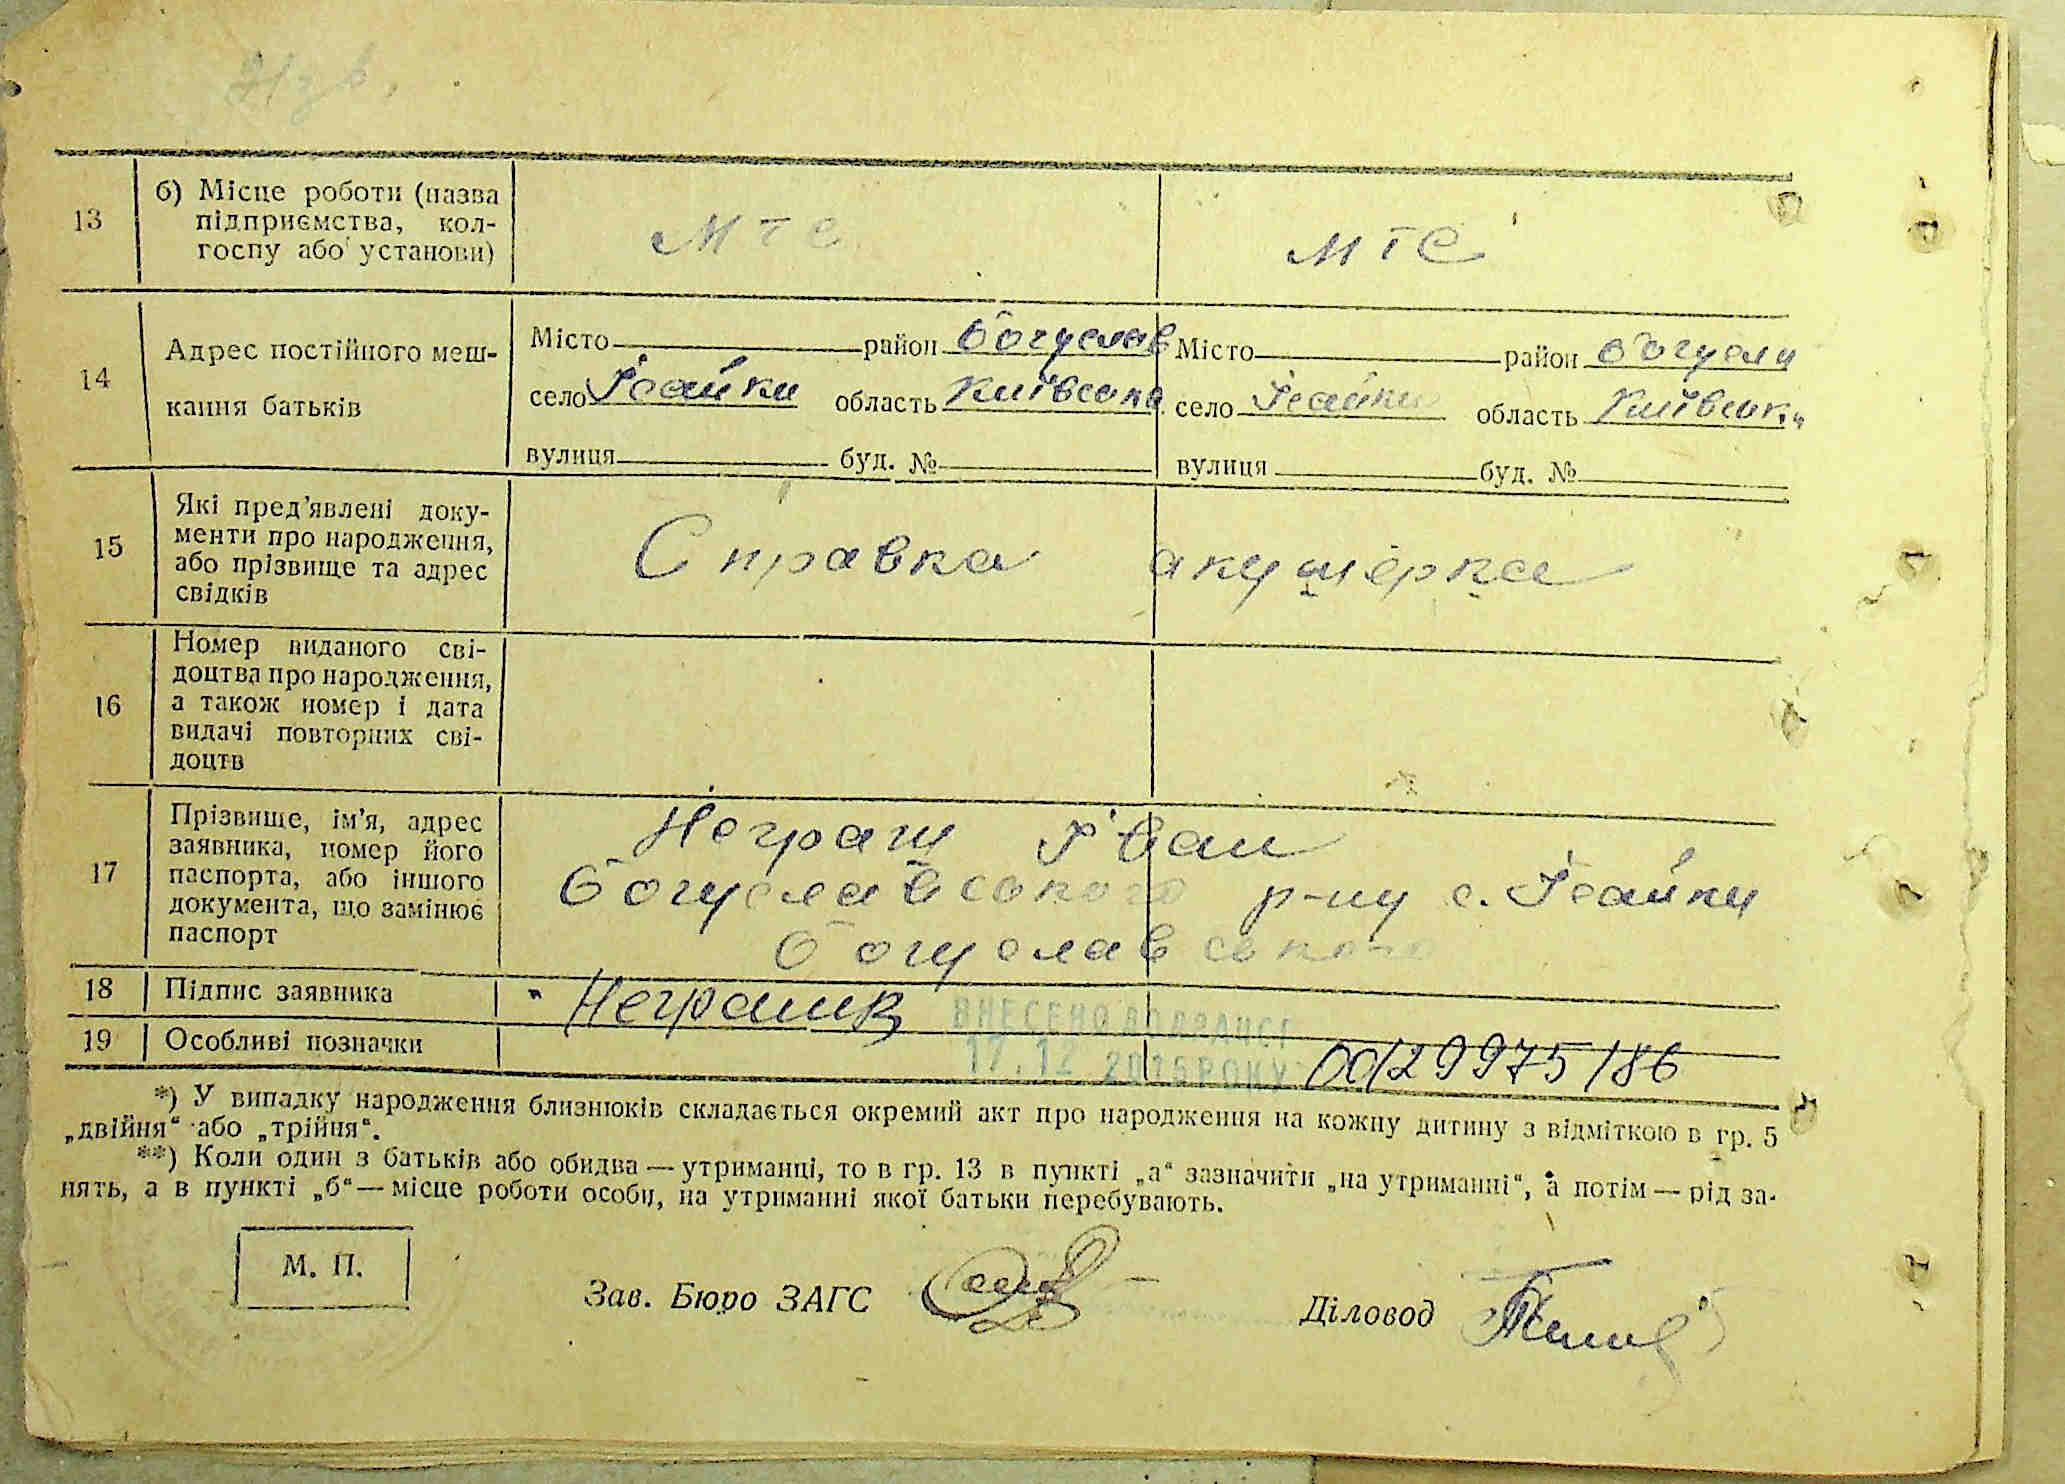 13
б) Місце роботи (назва
підприємства, кол-
госпу або установи)
МТС
МТС
14
Адрес постійного меш-
кання батьків
Місто район Богуслав
село Ісайки область Київська
вулиця буд. №
Місто район Богусла
село Ісайки область Київськ
вулиця буд. №
15
Які пред'явлені доку-
менти про народження,
або прізвище та адрес
свідків
Справка акушерка
16
Номер виданого сві-
доцтва про народження,
а також номер і дата
видачі повторних сві-
доцтв
17
Прізвище, ім'я, адрес
заявника, номер його
паспорта, або іншого
документа, що замінює
паспорт
Неграш Іван
Богуславського р-ну с. Ісайки
Богуславського
18 Підпис заявника
19 Особливі позначки
ВНЕСЕНО ДО ДРАЦСГ
17.12 2015 РОКУ
00129975186
*) У випадку народження близнюків складається окремий акт про народження на кожну дитину з відміткою в гр. 5
„двійня“ або „трійня“.
**) Коли один з батьків або обидва — утриманці, то в гр. 13 в пункті „а“ зазначити „на утриманні“, а потім — рід за-
нять, а в пункті „б“ — місце роботи особи, на утриманні якої батьки перебувають.
М. П.
Зав. Бюро ЗАГС
Діловод